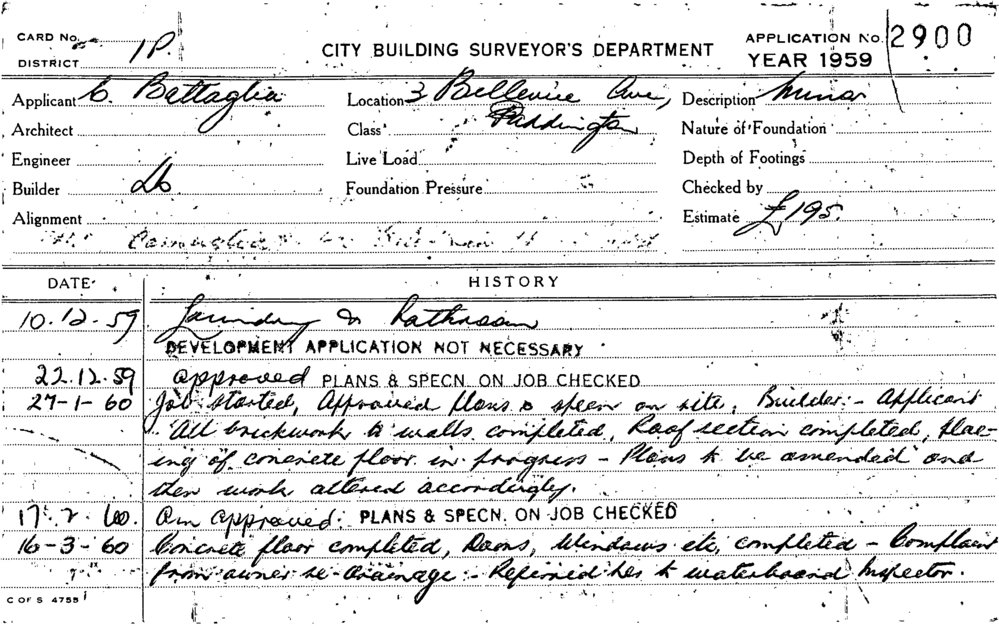 CARD No.
DISTRICT 1P
CITY BUILDING SURVEYOR'S DEPARTMENT
APPLICATION No. 2900
YEAR 1959
Applicant C. Battaglia Location 3 Bellevue Ave, Description Minor
Architect Class Paddington Nature of Foundation
Engineer Live Load Depth of Footings
Builder Do Foundation Pressure Checked by
Alignment Estimate £195.
DATE HISTORY
10.12.59 Laundry & Bathroom
DEVELOPMENT APPLICATION NOT NECESSARY
22.12.59 Approved PLANS & SPECN. ON JOB CHECKED
27-1-60 Job started, Approved plans & specn on site, Builder:- Applicant
All brickwork to walls completed, Roof section completed, plac-
ing of concrete floor in progress - Plans to be amended and
then work altered accordingly.
17.2.60. Am approved. PLANS & SPECN. ON JOB CHECKED
16-3-60 Concrete floor completed, Doors, Windows etc, completed - Complaint
from owner re-drainage - Referred her to waterboard Inspector.
C OF S 4755